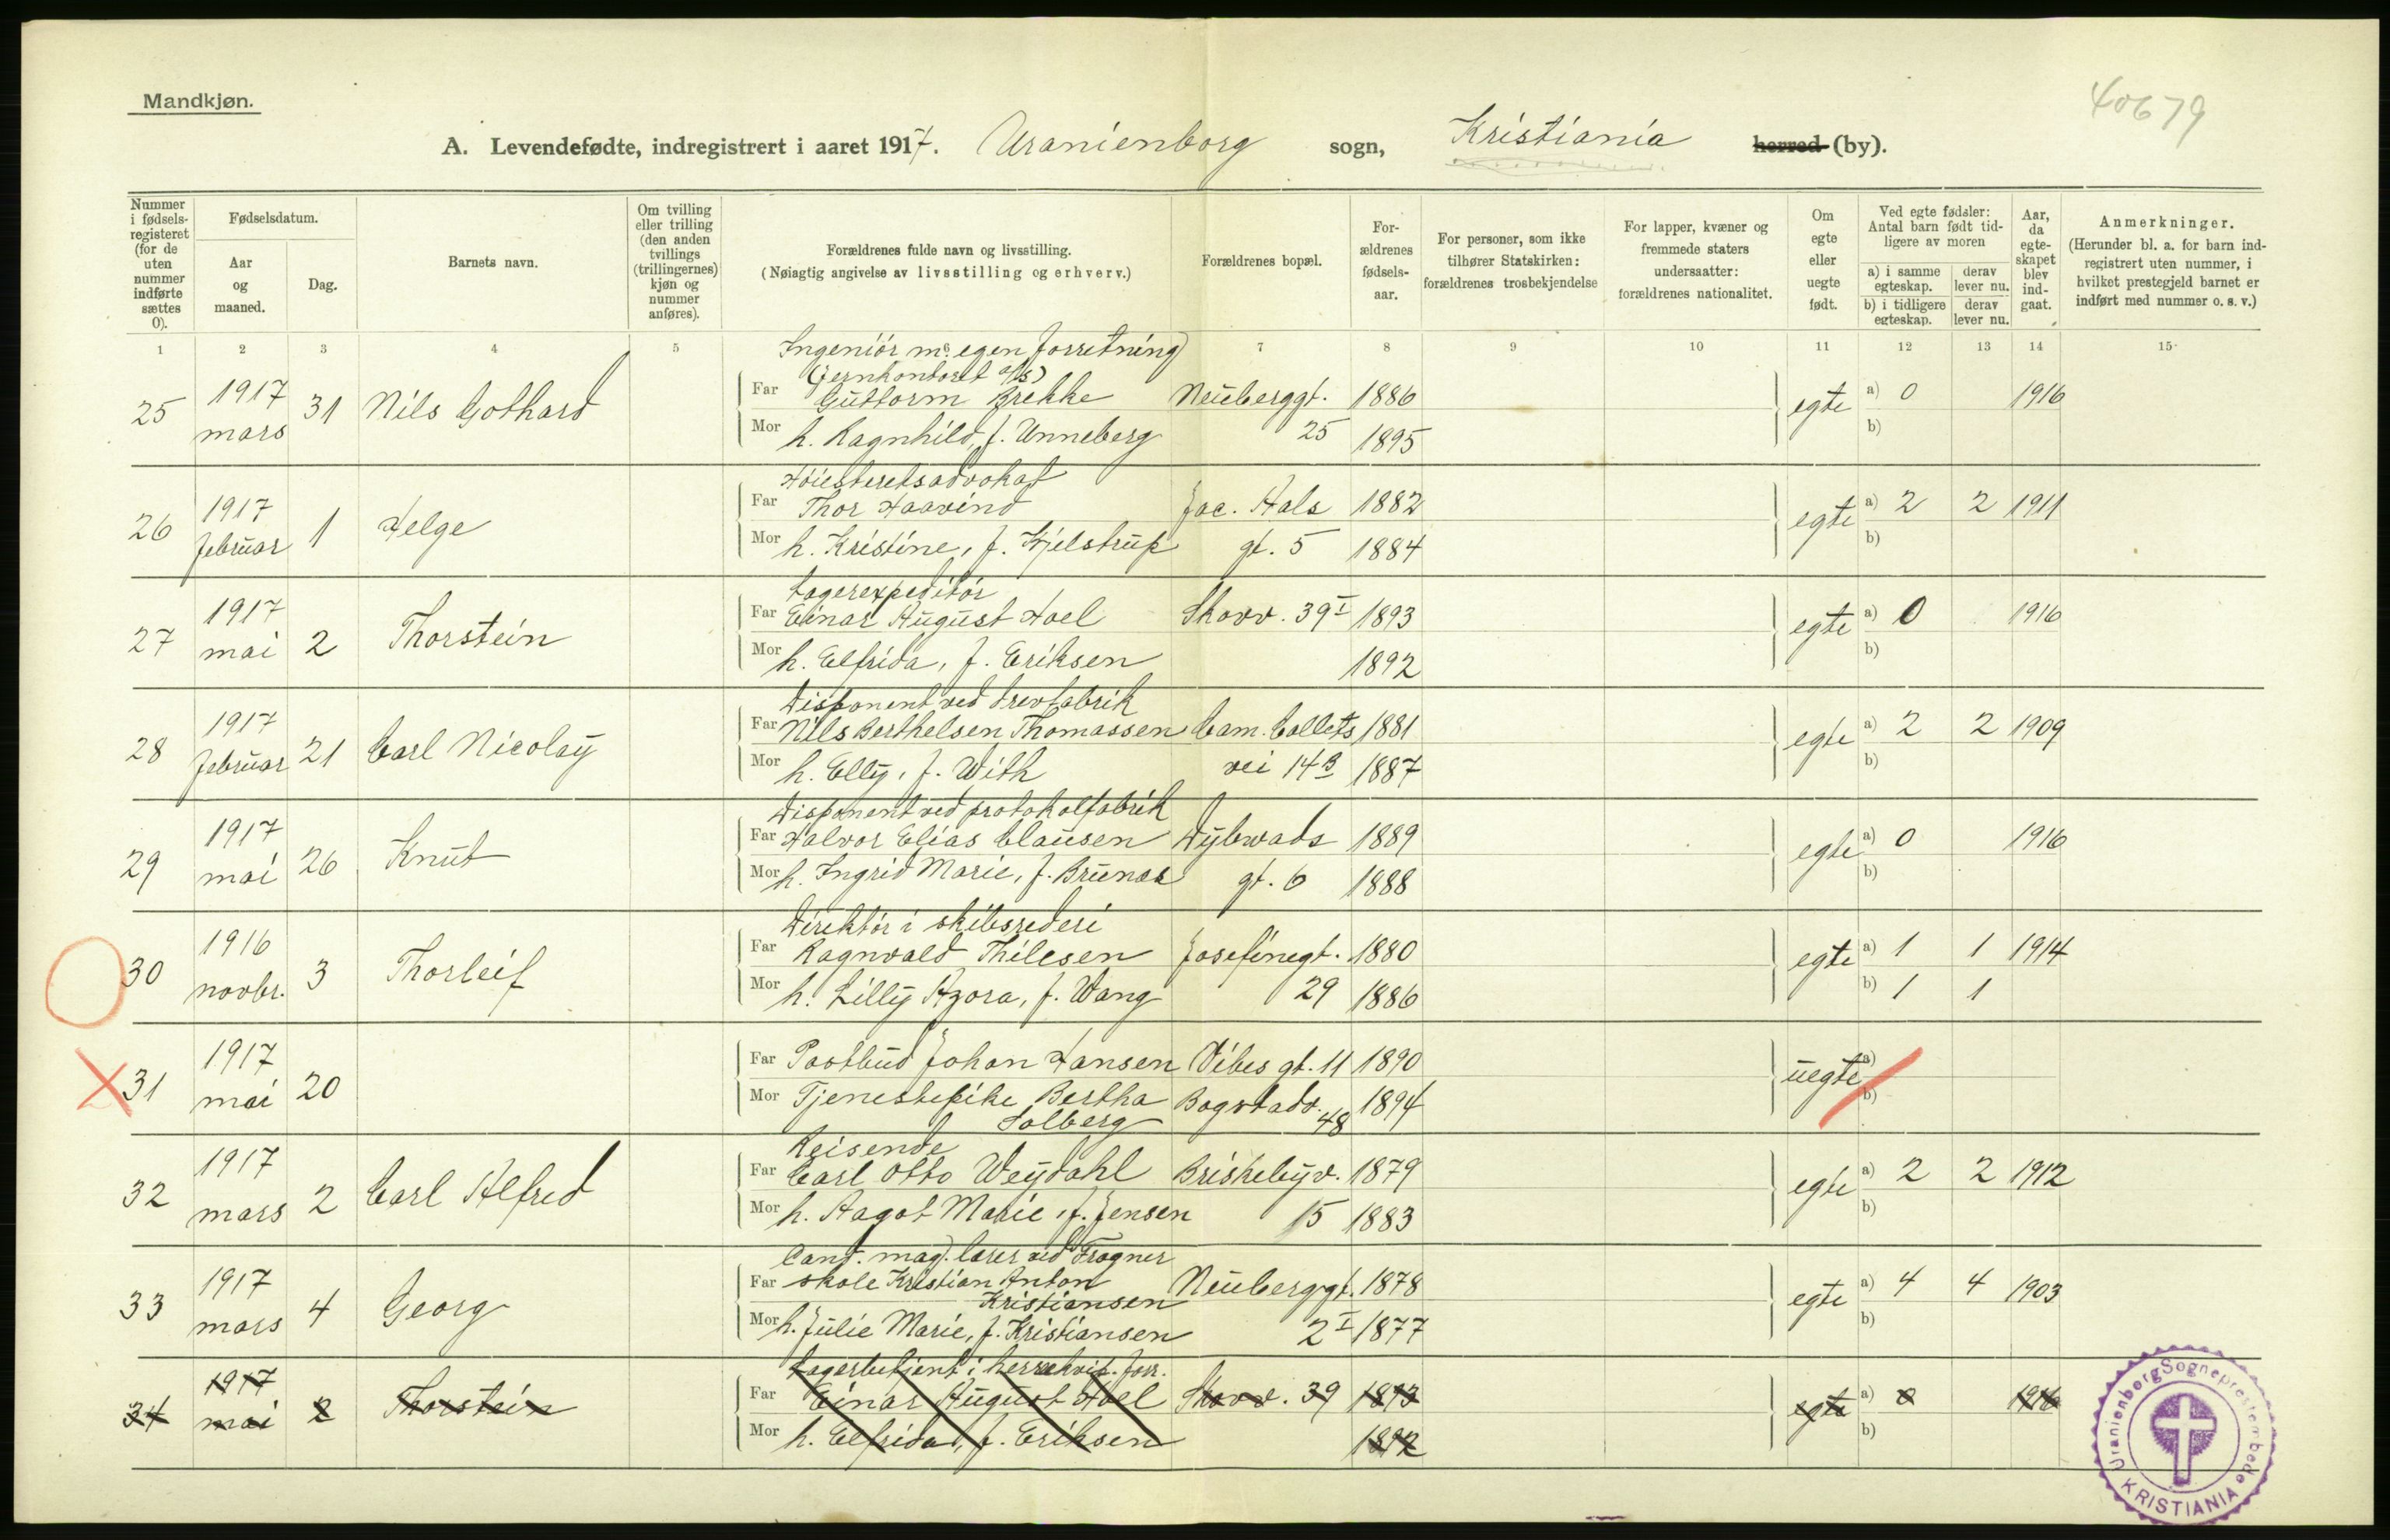 Mandkjøn.
40679
A. Levendefødte, indregistrert i aaret 1917. Uranienborg sogn, Kristiania herred (by).
Nummer i fødsels-registeret (for de uten nummer indførte sættes 0).
Fødselsdatum.
Aar og maaned.
Dag.
Barnets navn.
Om tvilling eller trilling (den anden tvillings (trillingernes) kjøn og nummer anføres).
Forældrenes fulde navn og livsstilling.
(Nøiagtig angivelse av livsstilling og erhverv.)
Forældrenes bopæl.
For-ældrenes fødsels-aar.
For personer, som ikke tilhører Statskirken: forældrenes trosbekjendelse
For lapper, kvæner og fremmede staters undersaatter: forældrenes nationalitet.
Om egte eller uegte født.
Ved egte fødsler: Antal barn født tid-ligere av moren
a) i samme egteskap. derav lever nu.
b) i tidligere egteskap. derav lever nu.
Aar, da egte-skapet blev ind-gaat.
Anmerkninger.
(Herunder bl. a. for barn ind-registrert uten nummer, i hvilket prestegjeld barnet er indført med nummer o. s. v.)
1 2 3 4 5 7 8 9 10 11 12 13 14 15
Ingeniör m. egen forretning
(Jernkontoret A/S)
25 1917 mars 31 Nils Gothard Far Guttorm Brekke Neuberggt. 1886 egte a) 0 1916
Mor h. Ragnhild, f. Unneberg 25 1895 b)
Höiesteretsadvokat
26 1917 februar 1 Helge Far Thor Haavind Jac. Hals 1882 egte a) 2 2 1911
Mor h. Kristine, f. Kjelstrup gt. 5 1884 b)
Lagerexpeditör
27 1917 mai 2 Thorstein Far Einar August Hoel Skovv. 39 I 1893 egte a) 0 1916
Mor h. Elfrida, f. Eriksen 1892 b)
Disponent ved trevfabrik
28 1917 februar 21 Carl Nicolay Far Nils Berthelsen Thomassen Cam. Collets 1881 egte a) 2 2 1909
Mor h. Elly, f. With vei 14 B 1887 b)
Disponent ved protokolfabrik
29 1917 mai 26 Knut Far Halvor Elias Clausen Dybwads 1889 egte a) 0 1916
Mor h. Ingrid Marie, f. Brunæs gt. 6 1888 b)
Direktör i skibsrederi
30 1916 novbr. 3 Thorleif Far Ragnvald Thilesen Josefinegt. 1880 egte a) 1 1 1914
Mor h. Lilly Azora, f. Wang 29 1886 b) 1 1
31 1917 mai 20 Far Postbud Johan Hansen Vibes gt. 11 1890 uegte a)
Mor Tjenestepike Bertha Solberg Bogstadv. 48 1894 b)
Reisende
32 1917 mars 2 Carl Alfred Far Carl Otto Weydahl Briskebyv. 1879 egte a) 2 2 1912
Mor h. Aagot Marie, f. Jensen 15 1883 b)
Cand. mag. lærer ved Frogner
33 1917 mars 4 Georg Far skole Kristian Anton Kristiansen Neuberggt. 1878 egte a) 4 4 1903
Mor h. Julie Marie, f. Kristiansen 2 I 1877 b)
Lagerbetjent i herreekvip. forr.
34 1917 mai 2 Thorstein Far Einar August Hoel Skovv. 39 1893 egte a) 0 1916
Mor h. Elfrida, f. Eriksen 1892 b)
Uranienborg Sogneprestembede
KRISTIANIA